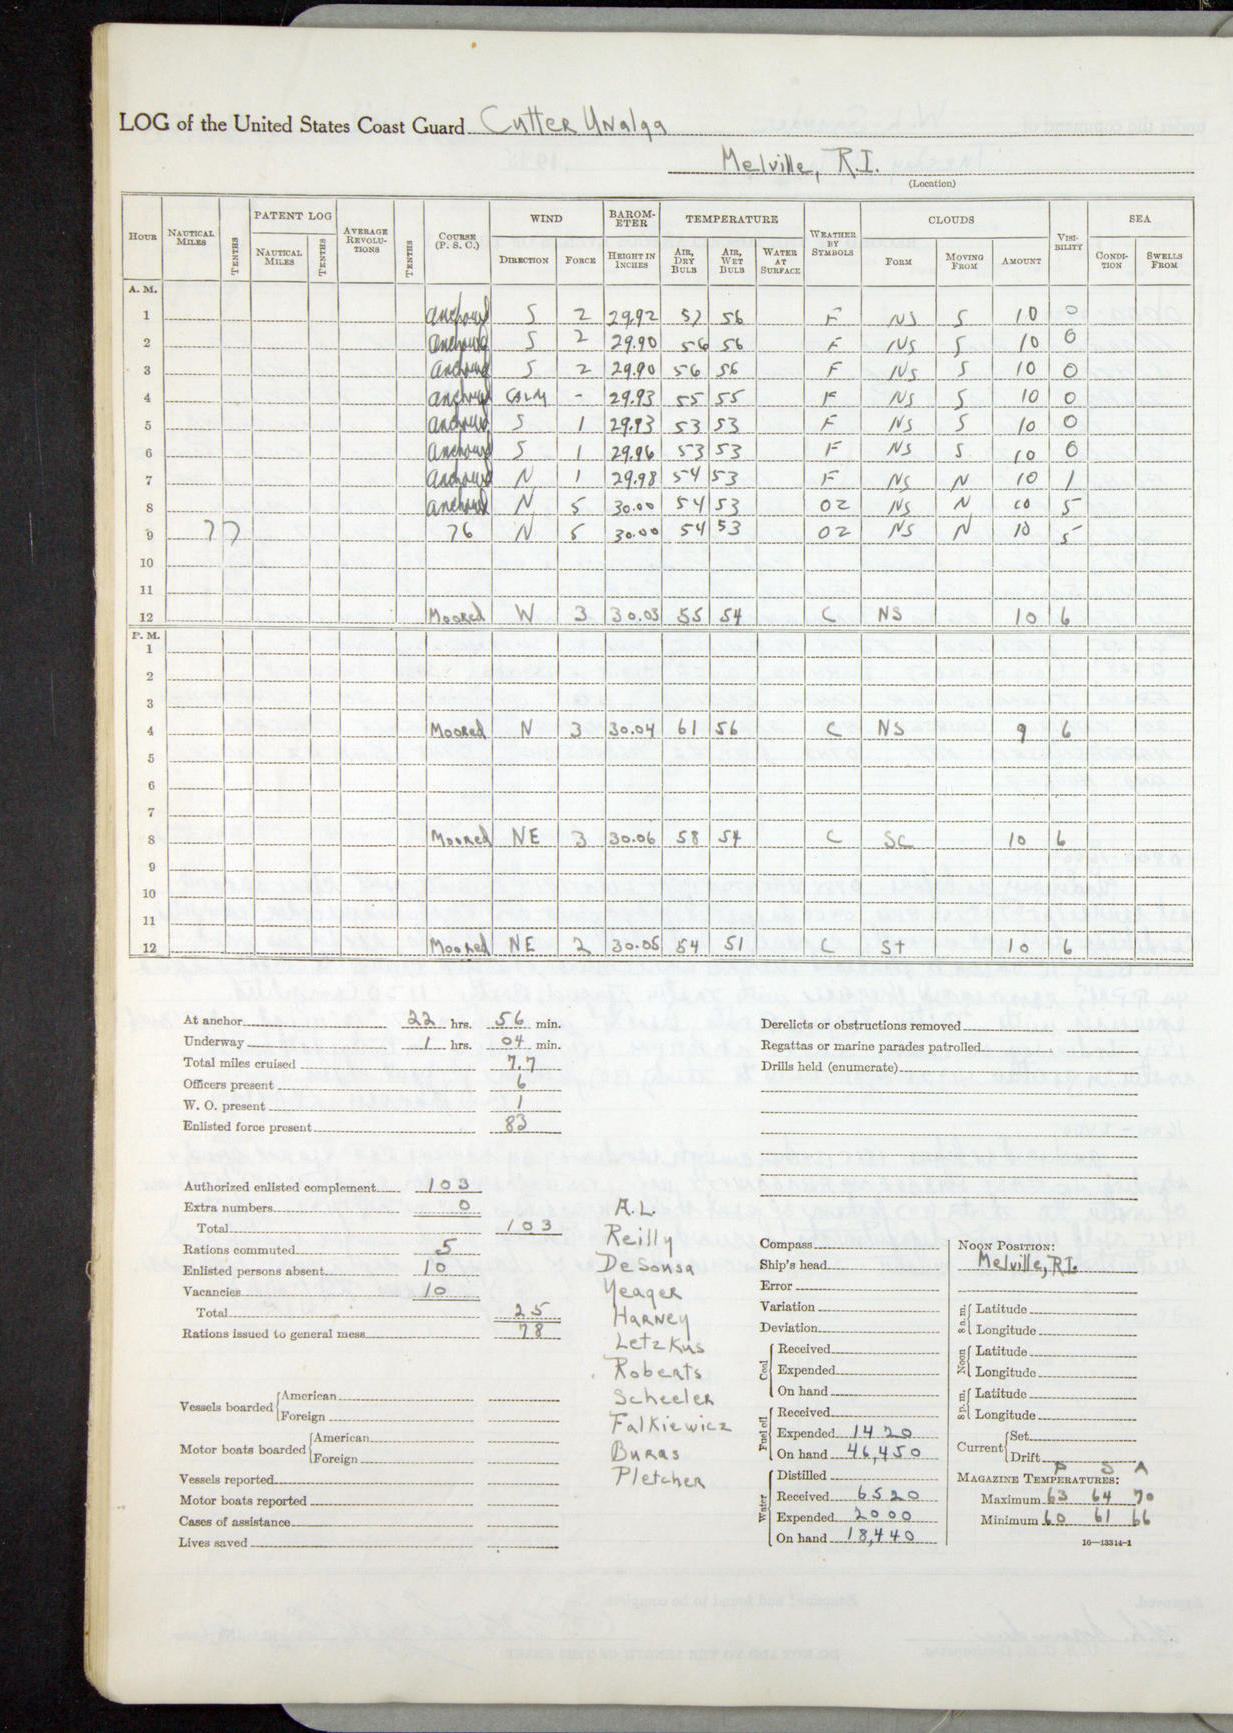 LOG of the United States Coast Guard Cutter Unalga
Melville, R.I.
(Location)
HOUR NAUTICAL MILES TENTHS PATENT LOG NAUTICAL MILES TENTHS AVERAGE REVOLU-TIONS TENTHS COURSE (P. S. C.) WIND DIRECTION FORCE BAROM-ETER HEIGHT IN INCHES TEMPERATURE AIR, DRY BULB AIR, WET BULB WATER AT SURFACE WEATHER BY SYMBOLS CLOUDS FORM MOVING FROM AMOUNT VISI-BILITY SEA CONDI-TION SWELLS FROM
A. M.
1 anchored S 2 29.92 57 56 F NS S 10 0
2 anchored S 2 29.90 56 56 F NS S 10 0
3 anchored S 2 29.90 56 56 F NS S 10 0
4 anchored CALM - 29.93 55 55 F NS S 10 0
5 anchored S 1 29.93 53 53 F NS S 10 0
6 anchored S 1 29.96 53 53 F NS S 10 0
7 anchored N 1 29.98 54 53 F NS N 10 1
8 anchored N 5 30.00 54 53 OZ NS N 10 5
9 7 7 76 N 5 30.00 54 53 OZ NS N 10 5
10
11
12 Moored W 3 30.03 55 54 C NS 10 6
P. M.
1
2
3
4 Moored N 3 30.04 61 56 C NS 9 6
5
6
7
8 Moored NE 3 30.06 58 54 C SC 10 6
9
10
11
12 Moored NE 2 30.05 54 51 C St 10 6
At anchor 22 hrs. 56 min.
Underway 1 hrs. 04 min.
Total miles cruised 7.7
Officers present 6
W. O. present 1
Enlisted force present 83
Authorized enlisted complement 103
Extra numbers 0
Total 103
Rations commuted 5
Enlisted persons absent 10
Vacancies 10
Total 25
Rations issued to general mess 78
Vessels boarded American
Foreign
Motor boats boarded American
Foreign
Vessels reported
Motor boats reported
Cases of assistance
Lives saved
A.L.
Reilly
DeSousa
Yeager
Harney
Letzkus
Roberts
Scheeler
Falkiewicz
Buras
Pletcher
Derelicts or obstructions removed
Regattas or marine parades patrolled
Drills held (enumerate)
Compass
Ship's head
Error
Variation
Deviation
Coal Received
Expended
On hand
Fuel oil Received
Expended 1420
On hand 46,450
Water Distilled
Received 6520
Expended 2000
On hand 18,440
NOON POSITION:
Melville, R.I.
8 a. m. Latitude
Longitude
Noon Latitude
Longitude
8 p. m. Latitude
Longitude
Current Set
Drift
P S A
MAGAZINE TEMPERATURES:
Maximum 63 64 70
Minimum 60 61 66
16—13314-1